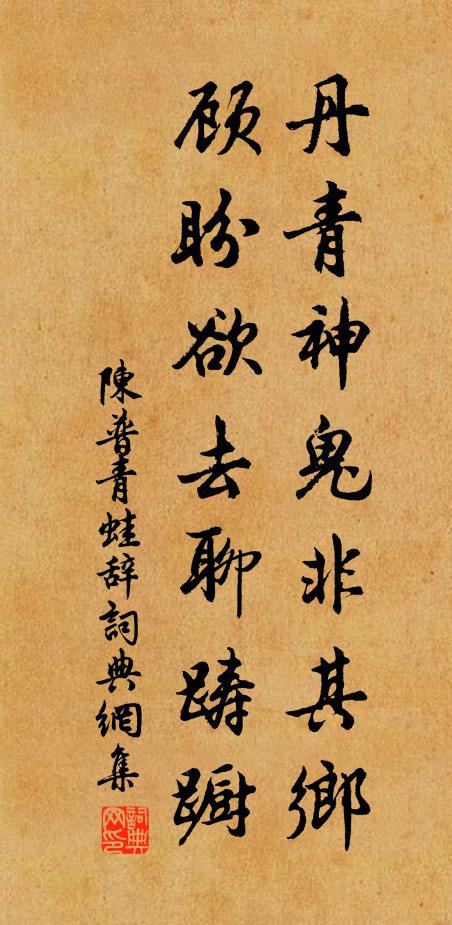 丹青神鬼非其鄉
顾盼欲去聊踌蹰
陳普青蛙辞詞典網集
詞典网印